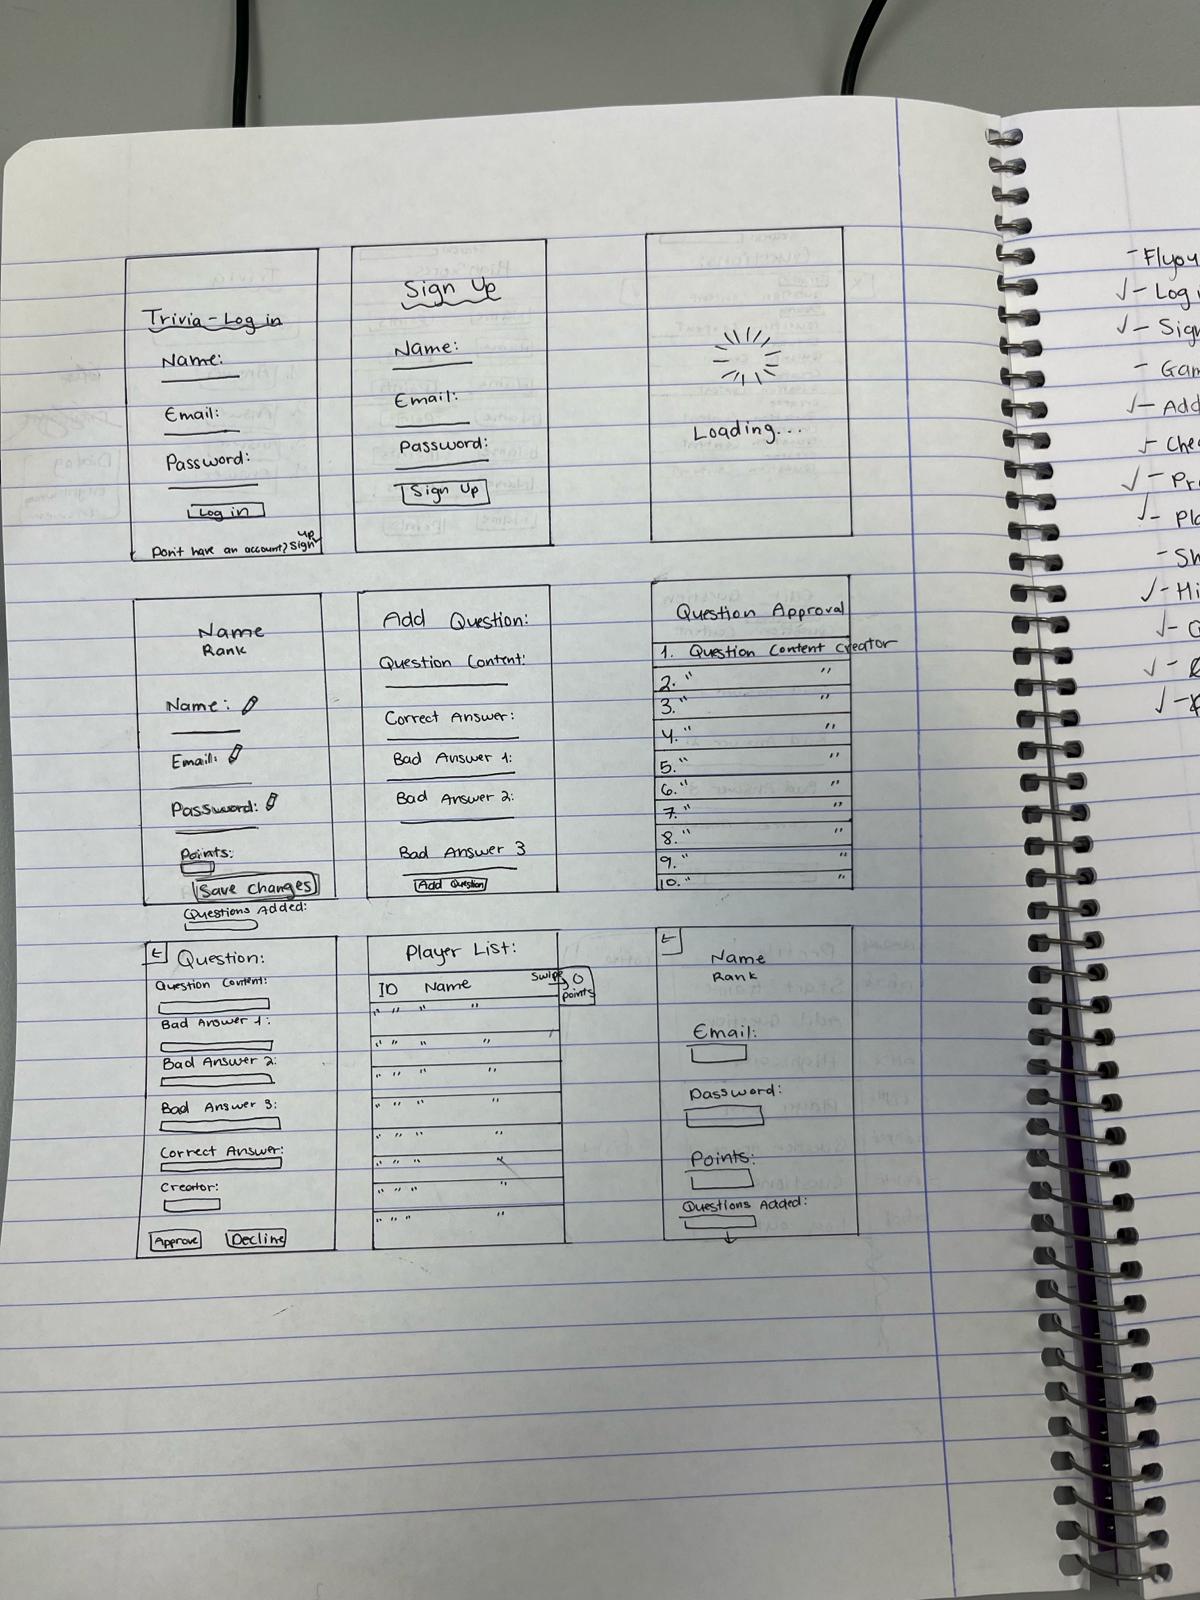 Trivia - Log in
Name:
Email:
Password:
Log in
Don't have an account? Sign up
Sign Up
Name:
Email:
Password:
Sign Up
Loading...
Name
Rank
Name:
Email:
Password:
Points:
Save changes
Questions Added:
Add Question:
Question Content:
Correct Answer:
Bad Answer 1:
Bad Answer 2:
Bad Answer 3
Add Question
Question Approval
1. Question Content Creator
2. " "
3. " "
4. " "
5. " "
6. " "
7. " "
8. " "
9. " "
10. " "
Question:
Question Content:
Bad Answer 1:
Bad Answer 2:
Bad Answer 3:
Correct Answer:
Creator:
Approve Decline
Player List:
ID Name Swipe 0 points
" " " "
" " " "
" " " "
" " " "
" " " "
" " " "
" " " "
" " " "
Name
Rank
Email:
Password:
Points:
Questions Added:
- Flyou
✓- Log i
✓- Sig
- Gam
✓- Add
✓ Che
✓- Pr
✓- Pl
- Sh
✓- Hi